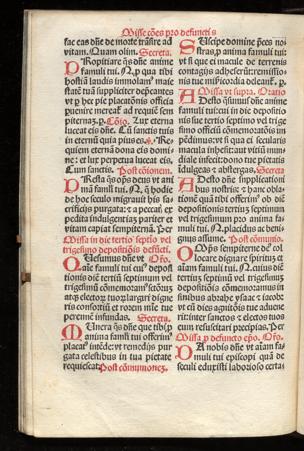 Misse cōes pro defunctis
fac eas dñe de morte trāsire ad
vitam. Quam olim. Secreta.
PRopitiare q̄s dñe anime
famuli tui. N. p qua tibi
hostiā laudis immolam⁹ maie
statē tuā suppliciter depcantes
vt p hec pie placatōnis officia
puenire mereat̄ ad requiē sem
piternaz. p. Cōio. Lux eterna
luceat eis dñe. Cū sanctis tuis
in eternū quia pius es. Re
quiem eternā dona eis domi-
ne: et lux perpetua luceat eis.
Cum sanctis. Post cōionem.
PResta q̄s oīps deus vt ani
mā famuli tui. N. q̄ hodie
de hoc seculo migrauit his sa-
crificijs purgata: et a peccat̄ ex-
pedita indulgentiaz pariter et
vitam capiat sempiternā. Per
Missa in die tertio septio vel
trigesimo depositiōis defūcti.
QUesumus dñe vt Oro.
aīme famuli tui cui⁹ depo-
sitionis diē tertiū septimum vel
trigesimū cōmemoram⁹ scōtuz
atq̄ electoꝝ tuoꝝ largiri digne
ris consortiū et rorem mīe tue
perennē infundas. Secreta.
MUnera q̄s dñe que tibi p
anima famli tui offerim⁹
placat⁹ intēde: vt remedijs pur
gata celestibus in tua pietate
requiescat. Post cōmunionez.
SUscipe domine preces no-
stras p anima famuli tui:
vt si que ei macule de terrenis
contagijs adheserūt: remissio-
nis tue misericordia deleant̄. p.
Missa vt supra. Oratio
ADesto q̄sumus dñe anime
famuli tui cui⁹ in depositio
nis sue tertiū septimū vel trige
simū officiū cōmemoratōis im
pēdimus: vt si qua eū secularis
macula inhesit: aut vitiū mun-
diale infecit: dono tue pietatis
indulgeas et abstergas. Secreta
ADesto dñe supplicationi
bus nostris: et hanc oblatio
nē quā tibi offerim⁹ ob diē
depositionis tertium septimum
vel trigesimum pro anima fa-
muli tui. N. placidus ac benig-
nus assume. Post cōmunio.
OMps sempiterne de⁹ col-
locare dignare spiritū et
aīam famuli tui. N. cuius diē
tertiū septimū vel trigesimū
depositionis cōmemoramus in
sinibus abrahe ysaac et iacob:
vt cū dies agnitōis tue adue-
rit inter sanctos et electos tuos
eum resuscitari precipias. Per
Missa p defuncto epō. Oro.
DA nobis dñe vt aīam fa-
muli tui episcopi quā de
seculi eduxisti laborioso certa-